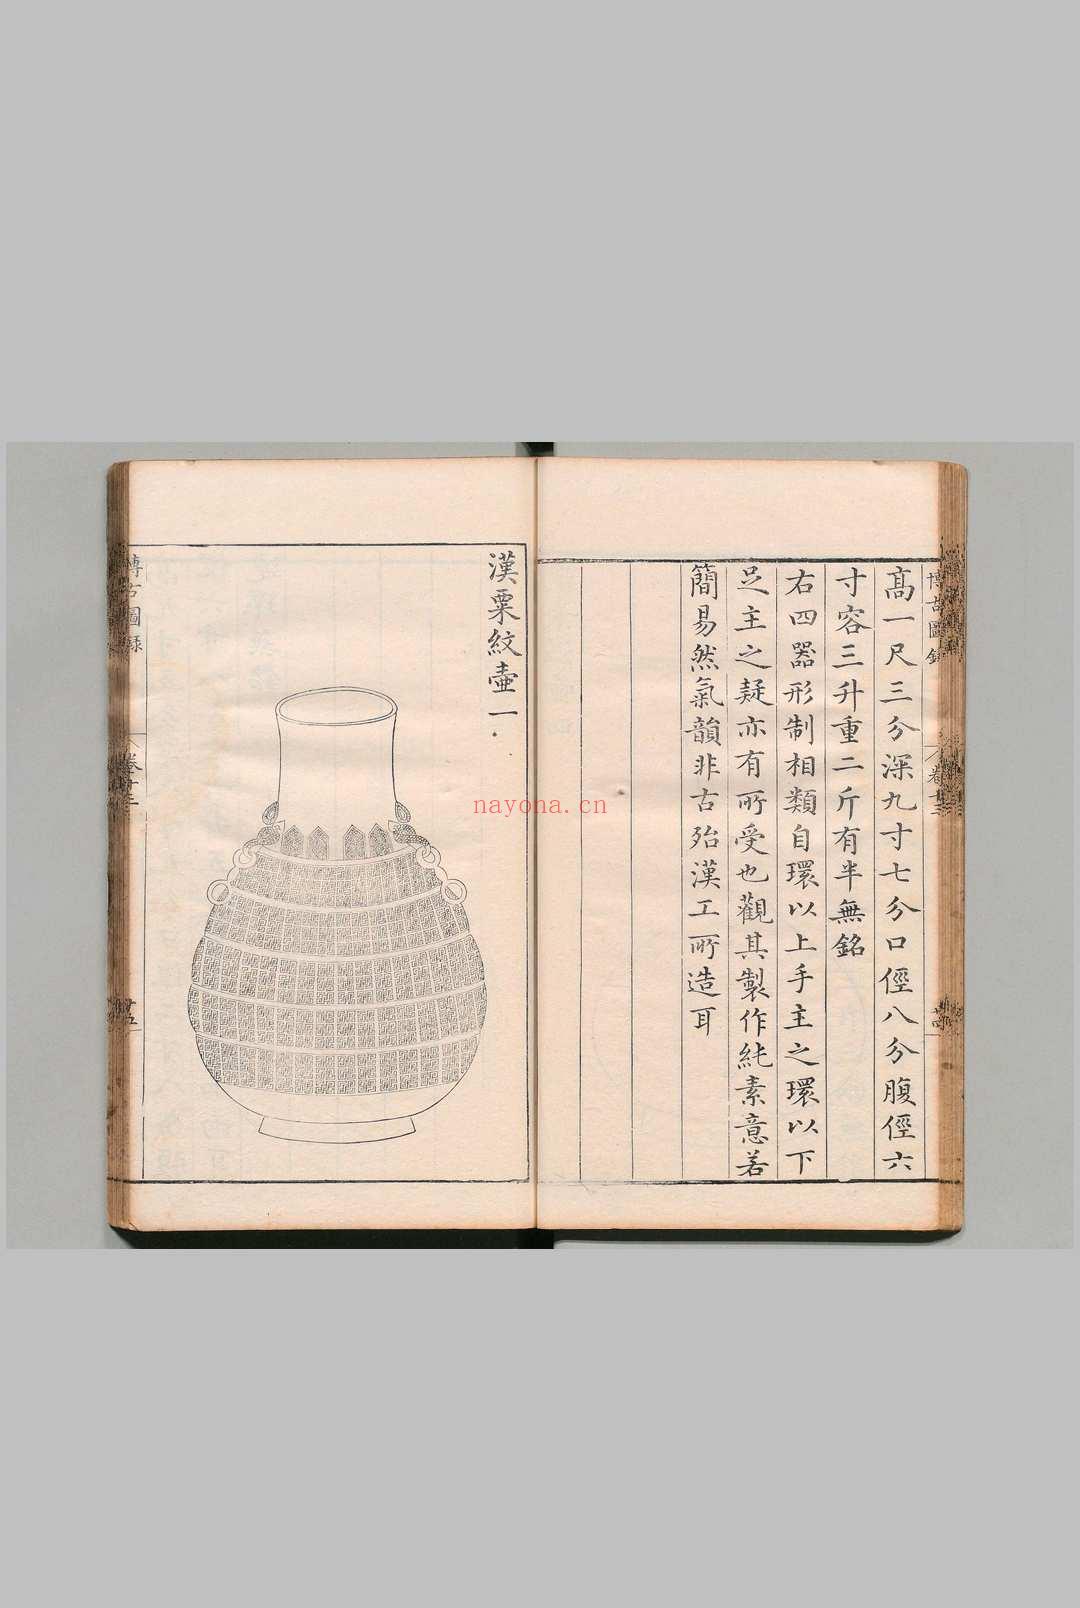 高一尺三分深九寸七分口徑八分腹徑六
寸容三升重二斤有半無銘
右四器形制相類自環以上手主之環以下
足主之疑亦有所受也觀其製作純素意若
簡易然氣韻非古殆漢工所造耳
漢粟紋壺一
博古圖錄
卷十三
博古圖錄
卷十三
nayona.cn